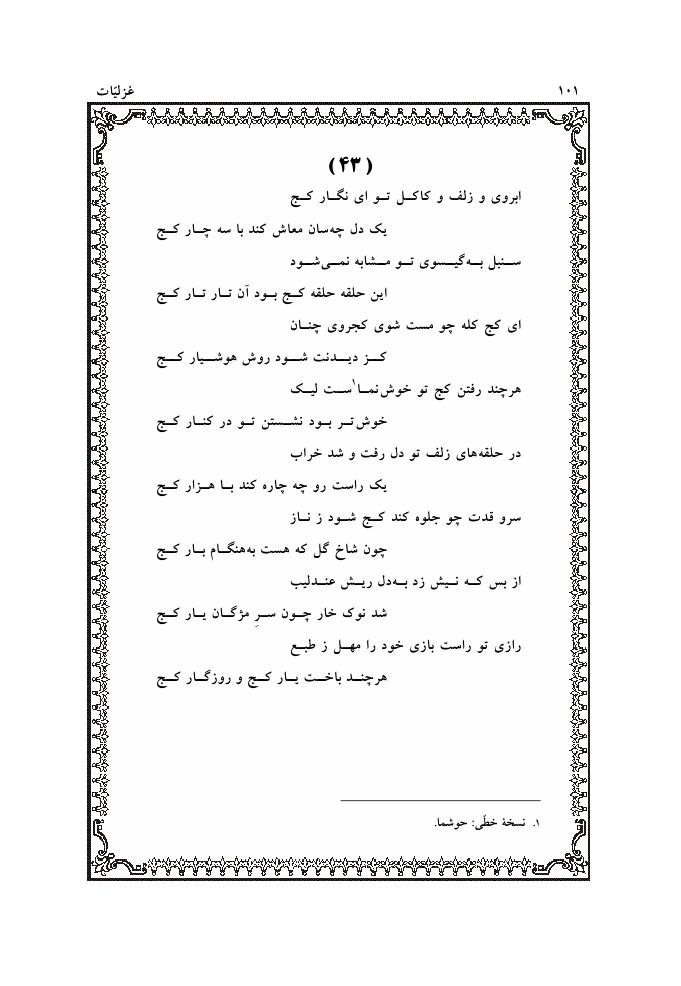 ۱۰۱ غزلیّات
(۴۳)
ابروی و زلف و کاکل تو ای نگار کج
یک دل چه‌سان معاش کند با سه چار کج
سنبل به‌گیسوی تو مشابه نمی‌شود
این حلقه حلقه کج بود آن تار تار کج
ای کج کله چو مست شوی کجروی چنان
کز دیدنت شود روش هوشیار کج
هرچند رفتن کج تو خوش‌نما۱ست لیک
خوش‌تر بود نشستن تو در کنار کج
در حلقه‌های زلف تو دل رفت و شد خراب
یک راست رو چه چاره کند با هزار کج
سرو قدت چو جلوه کند کج شود ز ناز
چون شاخ گل که هست به‌هنگام بار کج
از بس که نیش زد به‌دل ریش عندلیب
شد نوک خار چون سرِ مژگان یار کج
رازی تو راست بازی خود را مهل ز طبع
هرچند باخت یار کج و روزگار کج
۱. نسخهٔ خطّی: حوشما.